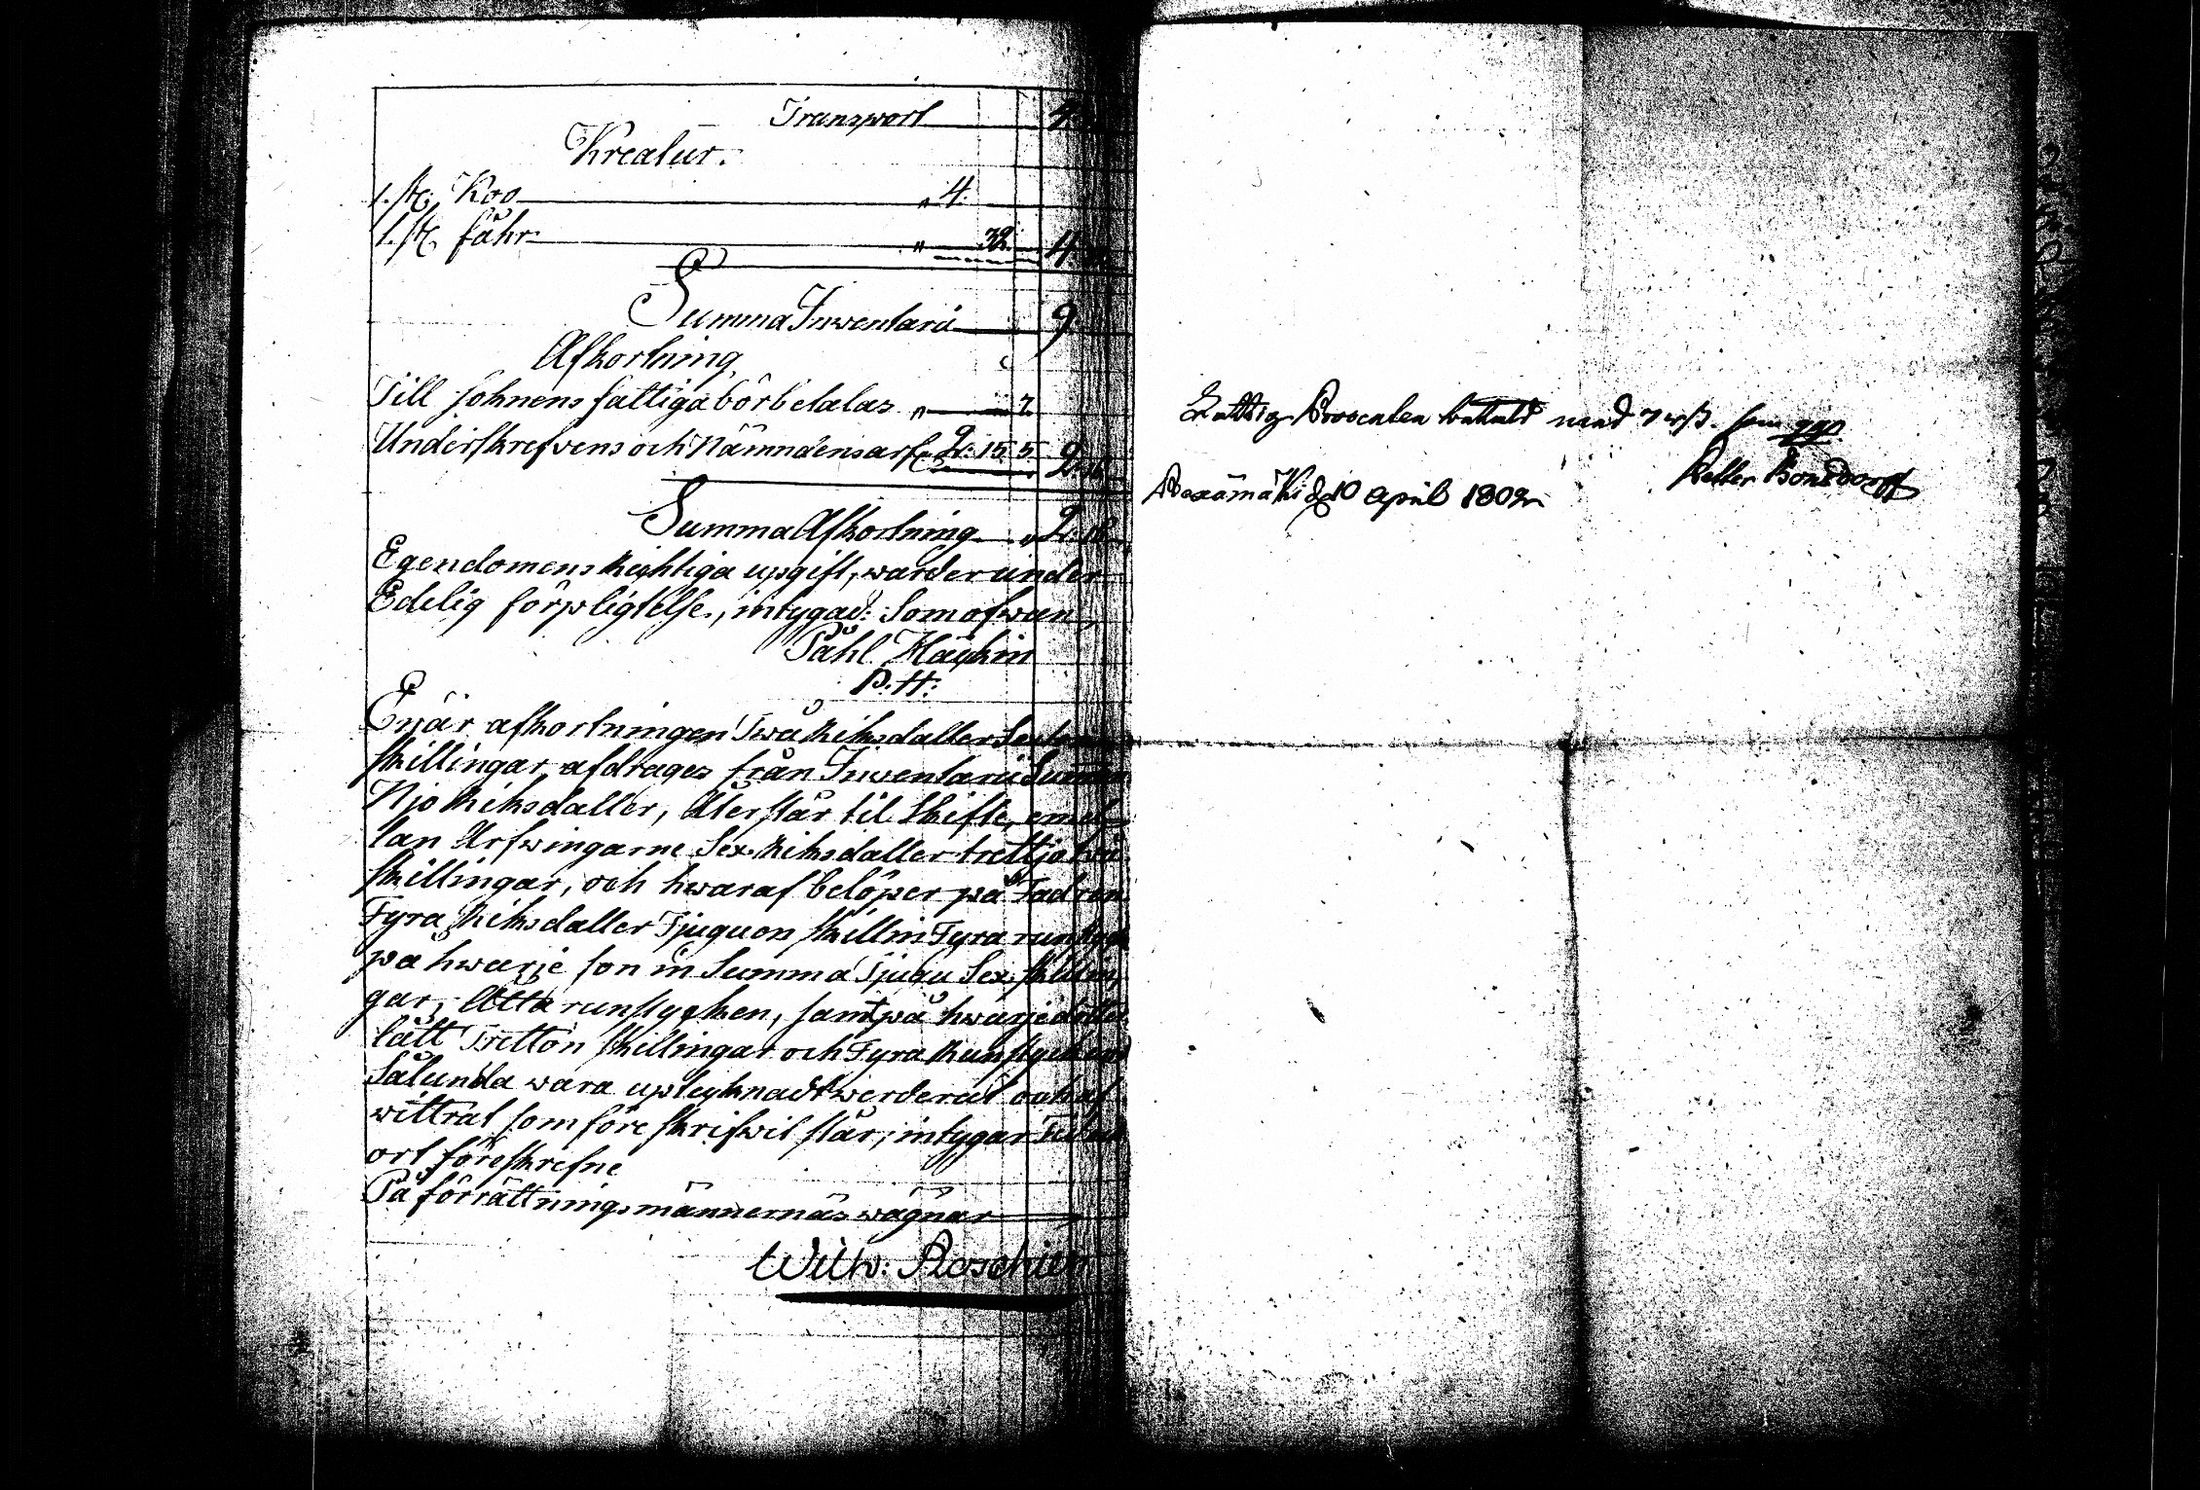 Transport 4
Kreatur.
1. st. Koo " 4.
1. st. fåhr " 32. 4
Summa Inwentarii 9
Afkortning
Till sohnens fattiga bör betalas " 7.
Underskrefvens och Nämndens arf. 2. 15. 5. 2. 16
Summa Afkortning 2. 16
Egendomens Richtiga upgift, warder under
Edelig förpligtelse, intygad: Som ofwan
Påhl Häyhin
P. H:
Enär afkortningen Twå Riksdaller Sexton
skillingar afdrages från Inwentarii Summan
Njo Riksdaller, Återstår til Skifte, emel
lan Arfwingarne Sex Riksdaller trettjo twå
skillingar, och hwaraf belöper på Fadren
Fyra Riksdaller Tjuguen skillin Fyra runstyck
på hwarje son in Summa Tjugu Sex skillin
gar, Åtta runstycken, samt på hwarje dotter
lått Tretton skillingar och Fyra Runstycken
Sålunda wara uptecknadt werderat och af
wittrat som före skrifwit står, intygar Tid och
ort föreskrefne
På förrättningsmännernäs wägnar
Wilh: Roschier
Fattig Procenten betalt med 7 rß. som qvo
Petter Bonsdorff
Rexämäki d 10 April 1802